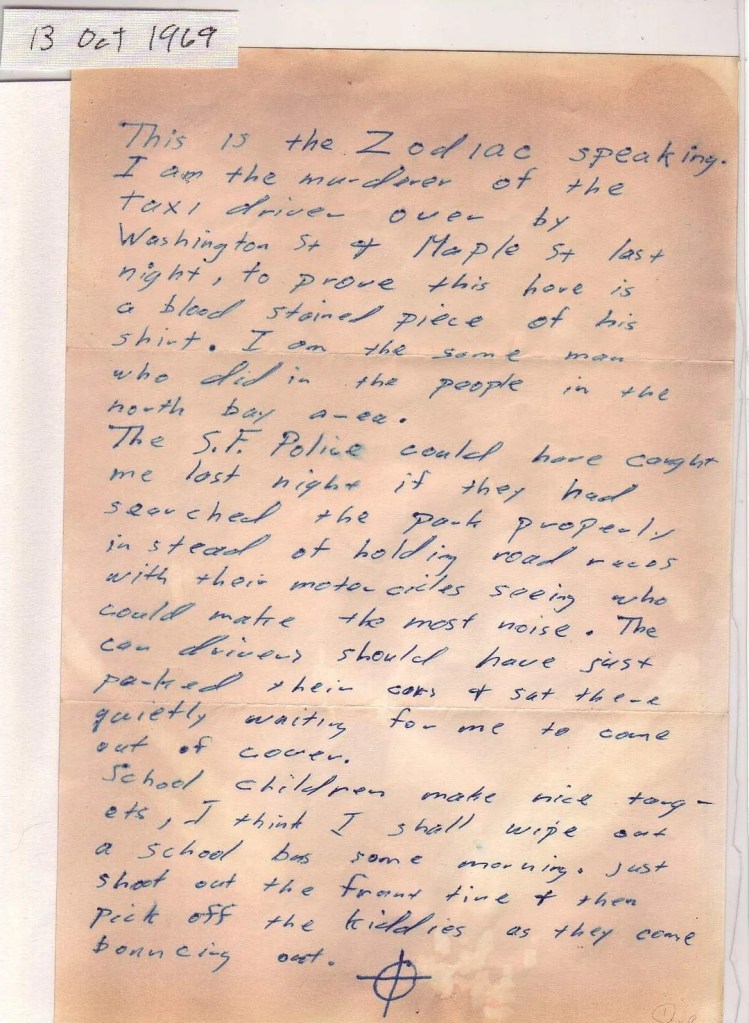 13 Oct 1969
This is the Zodiac speaking.
I am the murderer of the
taxi driver over by
Washington St & Maple St last
night, to prove this here is
a blood stained piece of his
shirt. I am the same man
who did in the people in the
north bay area.
The S.F. Police could have caught
me last night if they had
searched the park properly
instead of holding road races
with their motorcicles seeing who
could make the most noise. The
car drivers should have just
parked their cars & sat there
quietly waiting for me to come
out of cover.
School children make nice targ-
ets, I think I shall wipe out
a school bus some morning. Just
shoot out the front tire & then
pick off the kiddies as they come
bouncing out.